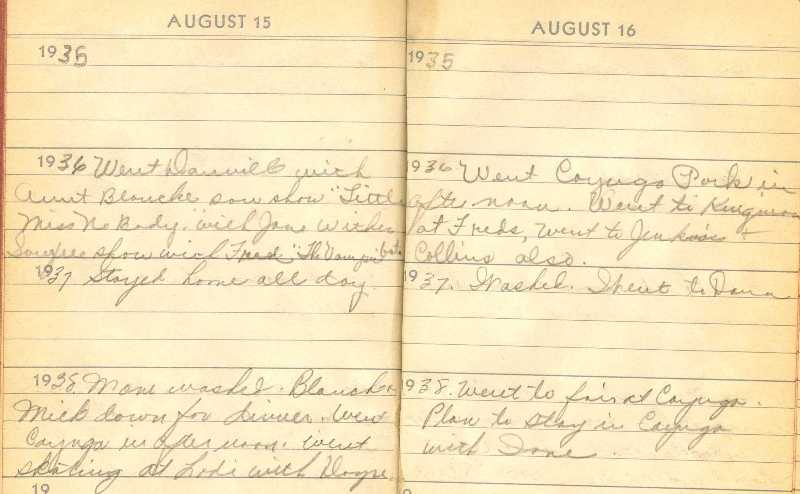 AUGUST 15
1935
1936 Went Danville with
Aunt Blanche saw show "Little
Miss No Body." with Jane Wither
show with Fred "The Vampire bat"
1937 Stayed home all day.
1938. Mom washed. Blanche &
Mick down for dinner. Went
Cayuga in after noon. Went
skating at Lodi with
19
AUGUST 16
1935
1936 Went Cayuga Park in
after noon. Went to Kingman
at Freds, went to Jenkins +
Collins also.
1937. Washed. Went to Dana
1938. Went to fair at Cayuga.
Plan to stay in Cayuga
with